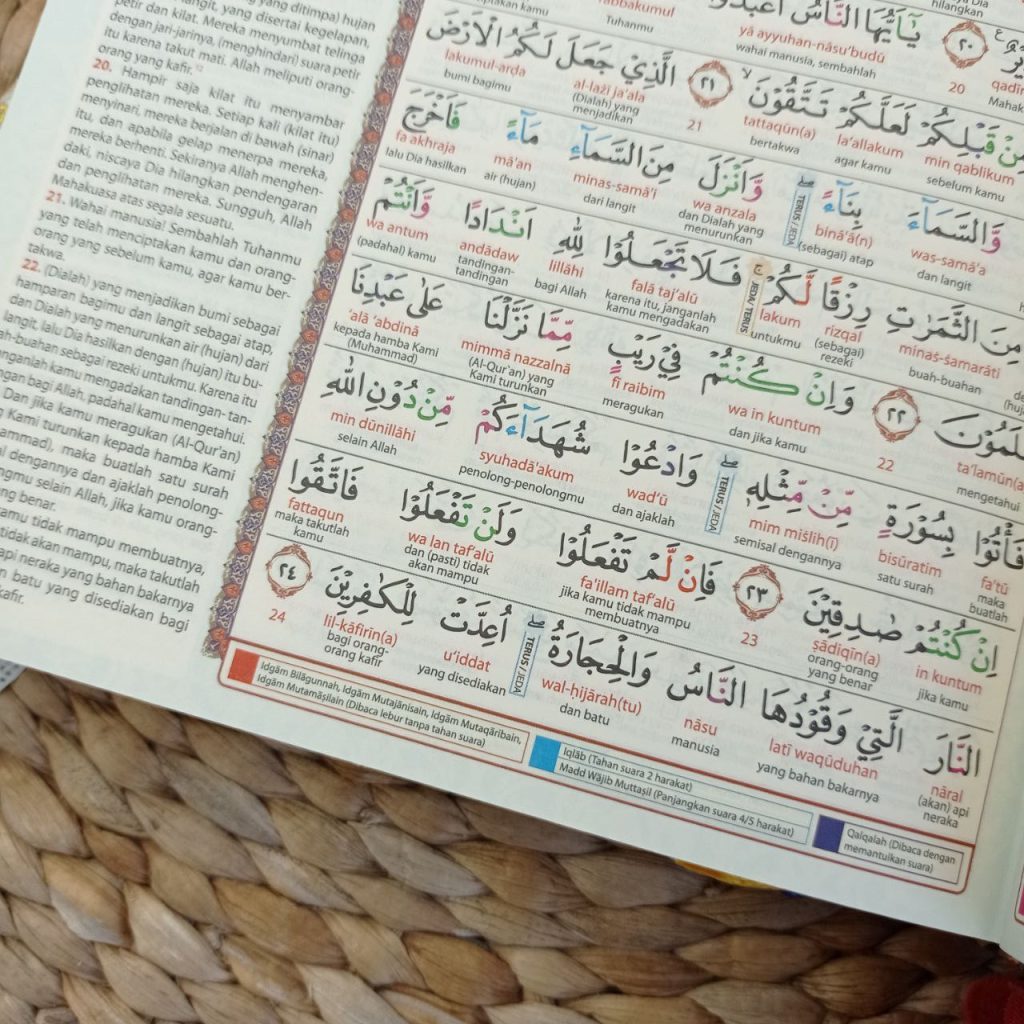 petir dan kilat. Mereka menyumbat telinga
dengan jari-jarinya, (menghindari) suara petir
itu karena takut mati. Allah meliputi orang-
orang yang kafir.
20. Hampir saja kilat itu menyambar
penglihatan mereka. Setiap kali (kilat itu)
menyinari, mereka berjalan di bawah (sinar)
itu, dan apabila gelap menerpa mereka,
mereka berhenti. Sekiranya Allah menghen-
daki, niscaya Dia hilangkan pendengaran
dan penglihatan mereka. Sungguh, Allah
Mahakuasa atas segala sesuatu.
21. Wahai manusia! Sembahlah Tuhanmu
yang telah menciptakan kamu dan orang-
orang yang sebelum kamu, agar kamu ber-
takwa.
22. (Dialah) yang menjadikan bumi sebagai
hamparan bagimu dan langit sebagai atap,
dan Dialah yang menurunkan air (hujan) dari
langit, lalu Dia hasilkan dengan (hujan) itu bu-
ah-buahan sebagai rezeki untukmu. Karena itu
janganlah kamu mengadakan tandingan-tan-
dingan bagi Allah, padahal kamu mengetahui.
Dan jika kamu meragukan (Al-Qur'an)
Kami turunkan kepada hamba Kami
maka buatlah satu surah
dengannya dan ajaklah penolong-
selain Allah, jika kamu orang-
benar.
kamu tidak mampu membuatnya,
tidak akan mampu, maka takutlah
api neraka yang bahan bakarnya
batu yang disediakan bagi
kafir.
Tuhanmu
yā ayyuhan-nāsu'budū
wahai manusia, sembahlah
٢٠
20
مِنْ قَبْلِكُمْ لَعَلَّكُمْ تَتَّقُوْنَۙ ٢١ الَّذِيْ جَعَلَ لَكُمُ الْاَرْضَ
min qablikum la'allakum tattaqūn(a) 21 al-lażī ja'ala lakumul-arḍa
sebelum kamu agar kamu bertakwa (Dialah) yang menjadikan bumi bagimu
وَّالسَّمَاۤءَ بِنَاۤءً وَّاَنْزَلَ مِنَ السَّمَاۤءِ مَاۤءً فَاَخْرَجَ
was-samā'a binā'ā(n) TERUS / JEDA wa anzala minas-samā'i mā'an fa akhraja
dan langit (sebagai) atap dan Dialah yang menurunkan dari langit air (hujan) lalu Dia hasilkan
مِنَ الثَّمَرٰتِ رِزْقًا لَّكُمْۚ فَلَا تَجْعَلُوْا لِلّٰهِ اَنْدَادًا وَّاَنْتُمْ
minaṡ-ṡamarāti rizqal lakum JEDA / TERUS falā taj'alū lillāhi andādaw wa antum
buah-buahan (sebagai) rezeki untukmu karena itu, janganlah kamu mengadakan bagi Allah tandingan-tandingan (padahal) kamu
تَعْلَمُوْنَ ٢٢ وَاِنْ كُنْتُمْ فِيْ رَيْبٍ مِّمَّا نَزَّلْنَا عَلٰى عَبْدِنَا
ta'lamūn(a) 22 wa in kuntum fī raibim mimmā nazzalnā 'alā 'abdinā
mengetahui dan jika kamu meragukan (Al-Qur'an) yang Kami turunkan kepada hamba Kami (Muhammad)
فَأْتُوْا بِسُوْرَةٍ مِّنْ مِّثْلِهٖۖ وَادْعُوْا شُهَدَاۤءَكُمْ مِّنْ دُوْنِ اللّٰهِ
fa'tū bisūratim mim miṡlih(ī) TERUS / JEDA wad'ū syuhadā'akum min dūnillāhi
maka buatlah satu surah semisal dengannya dan ajaklah penolong-penolongmu selain Allah
اِنْ كُنْتُمْ صٰدِقِيْنَ ٢٣ فَاِنْ لَّمْ تَفْعَلُوْا وَلَنْ تَفْعَلُوْا فَاتَّقُوا
in kuntum ṣādiqīn(a) 23 fa'illam taf'alū wa lan taf'alū fattaqun
jika kamu orang-orang yang benar jika kamu tidak mampu membuatnya dan (pasti) tidak akan mampu maka takutlah kamu
النَّارَ الَّتِيْ وَقُوْدُهَا النَّاسُ وَالْحِجَارَةُۖ اُعِدَّتْ لِلْكٰفِرِيْنَ ٢٤
nāral latī waqūduhan nāsu wal-ḥijārah(tu) TERUS / JEDA u'iddat lil-kāfirīn(a) 24
(akan) api neraka yang bahan bakarnya manusia dan batu yang disediakan bagi orang-orang kafir
Idgām Bilāgunnah, Idgām Mutajānisain, Idgām Mutaqāribain,
Idgām Mutamāṡilain (Dibaca lebur tanpa tahan suara)
Iqlāb (Tahan suara 2 harakat)
Madd Wājib Muttaṣil (Panjangkan suara 4/5 harakat)
Qalqalah (Dibaca dengan
memantulkan suara)